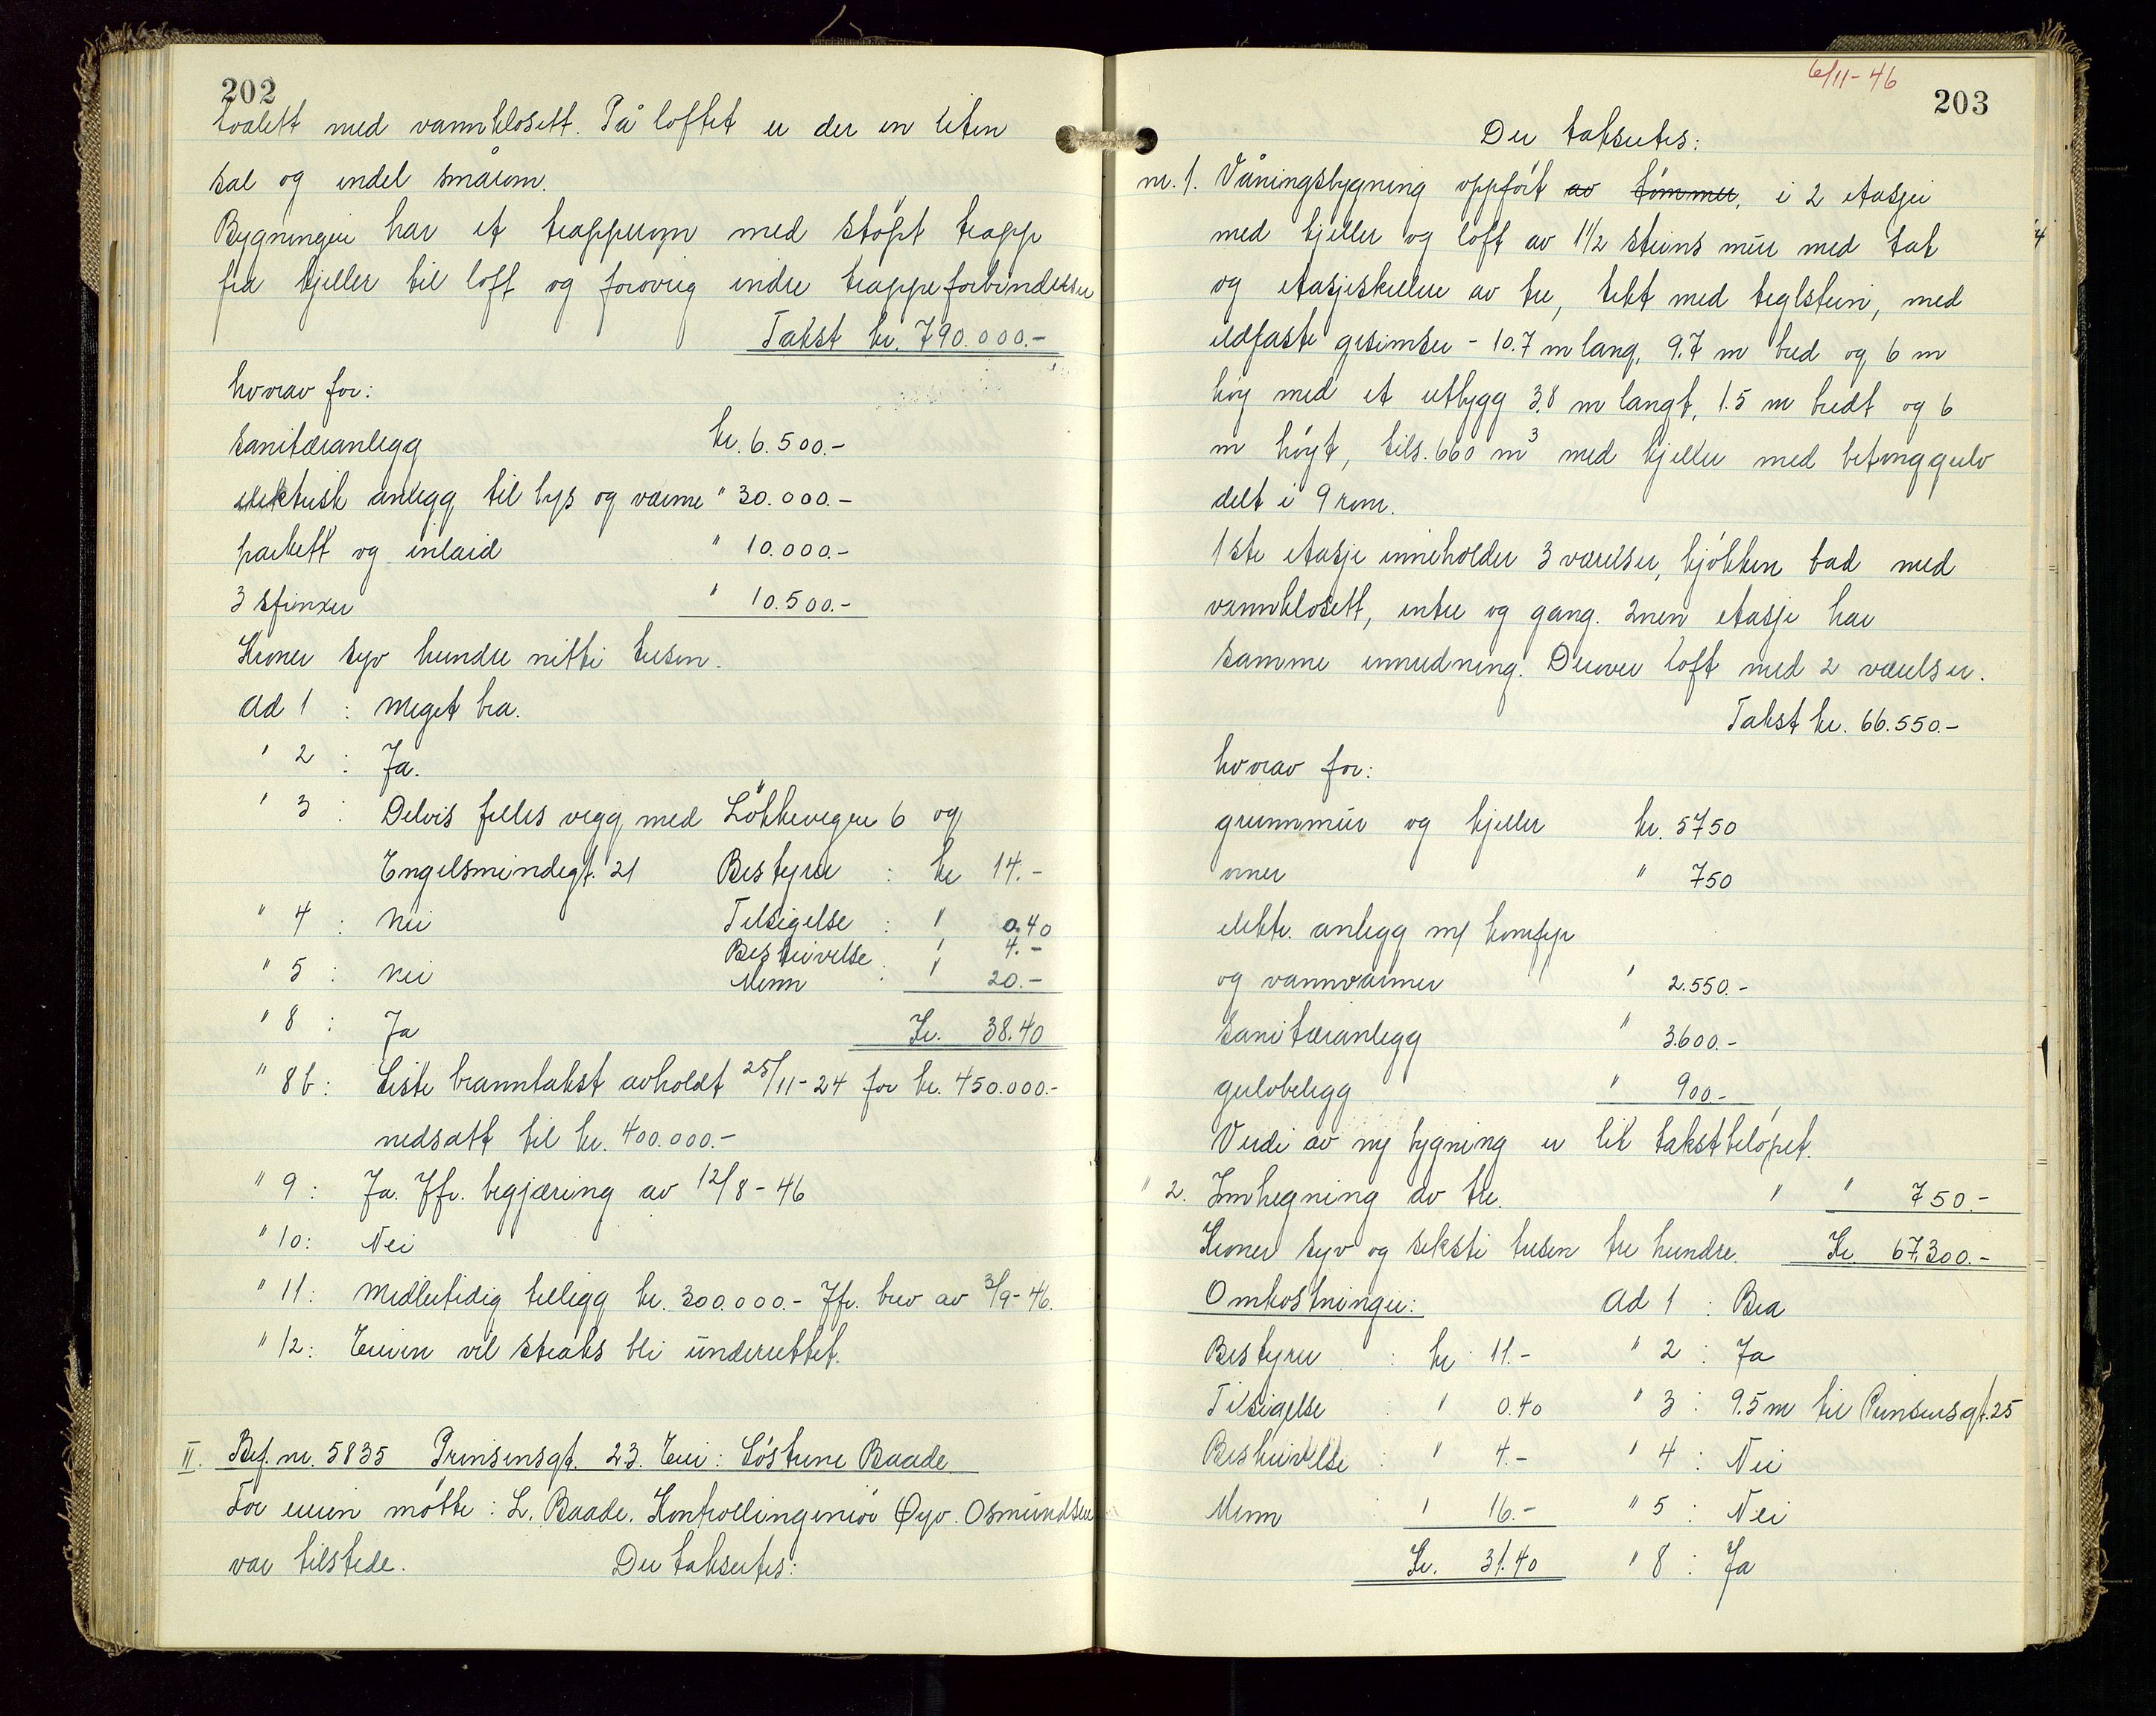 202
toalett med vannklosett. På loftet er der en liten
sal og endel smårom.
Bygningen har et trapperom med støpt trapp
fra kjeller til loft og forøvrig indre trappeforbindelser
Takst kr. 790.000.-
hvorav for:
sanitæranlegg kr. 6.500.-
elektrisk anlegg til lys og varme " 30.000.-
parkett og inlaid " 10.000.-
3 sfinxer " 10.500.-
Kroner syv hundre nitti tusen.
Ad 1 : Meget bra.
" 2 : Ja.
" 3 : Delvis felles vegg med Løkkevegen 6 og
Engelsmindegt. 21 Bestyrer : kr 14.-
" 4 : Nei Tilsigelse : " 0.40
Beskrivelse : " 4.-
" 5 : Nei Menn : " 20.-
" 8 : Ja Kr. 38.40
" 8b : Siste branntakst avholdt 25/11-24 for kr. 450.000.-
nedsatt til kr. 400.000.-
" 9 : Ja. Jfr. begjæring av 12/8-46
" 10: Nei
" 11: Midlertidig tillegg kr. 300.000.- Jfr. brev av 3/9-46.
" 12: Eieren vil straks bli underrettet.
II. Bef. nr. 5835 Prinsensgt. 23. Eier: Søstrene Baade
For eieren møtte: L. Baade. Kontrollingeniør Øyv. Osmundsen
var tilstede. Der taksertes:
6/11-46
203
Der taksertes:
nr. 1. Våningsbygning oppført av tømmer, i 2 etasjer
med kjeller og loft av 1 1/2 steins mur med tak
og etasjeskiller av tre, tekt med teglstein, med
ildfaste gesimser - 10.7 m lang, 9.7 m bred og 6 m
høy med et utbygg 3.8 m langt, 1.5 m bredt og 6
m høyt, tils. 660 m3 med kjeller med betonggulv
delt i 9 rom.
1ste etasje inneholder 3 værelser, kjøkken bad med
vannklosett, entre og gang. 2nen etasje har
samme innredning. Derover loft med 2 værelser.
Takst kr. 66.550.-
hvorav for:
grunnmur og kjeller kr. 5750
ovner " 750
elektr. anlegg m/ komfyr
og vannvarmer " 2.550.-
sanitæranlegg " 3.600.-
gulvbelegg " 900.-
Verdi av ny bygning er lik takstbeløpet.
" 2. Innhegning av tre. " " 750.-
Kroner syv og seksti tusen tre hundre. Kr. 67.300.-
Omkostninger: Ad 1 : Bra
Bestyrer : kr 11.- " 2 : Ja
Tilsigelse : " 0.40 " 3 : 9.5 m til Prinsensgt. 25
Beskrivelse : " 4.- " 4 : Nei
Menn : " 16.- " 5 : Nei
Kr. 31.40 " 8 : Ja